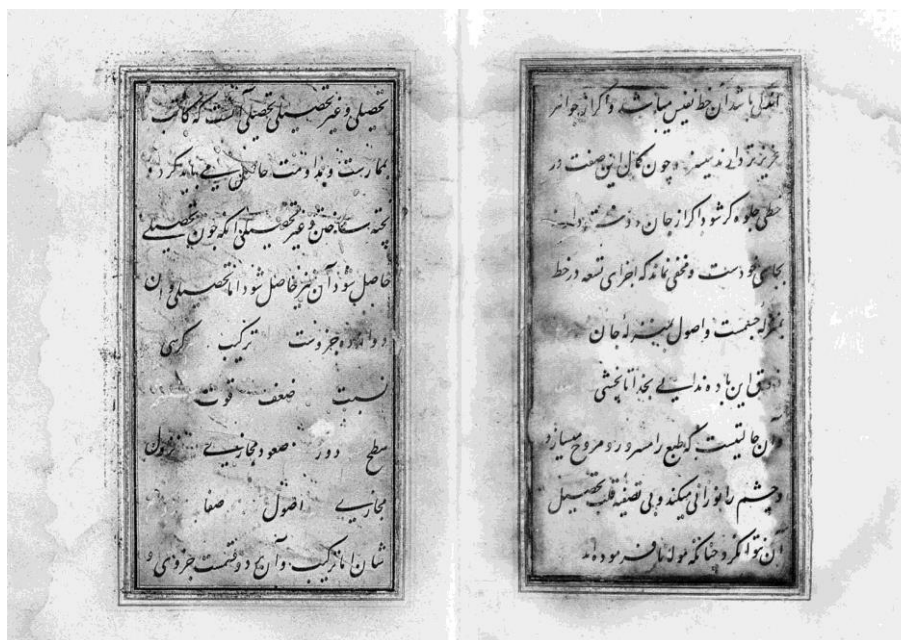 اندک باشد آن خط نفیس میباشد و اگر از جواهر
عزیزتر دارند میسزد و چون کمال این صفت در
خطی جلوه گر شود اگر از جان دوست‌تر دارند
بجای خودست و مخفی نماند که اجزای تسعه در خط
بمنزله جسمست و اصول بمنزله جان
ذوق این باده ندانی بخدا تا نچشی
و آن حالتیست که طبع را مسرور و مروح میسازد
و چشم را نورانی میکند و بی تصفیه قلب تحصیل
آن نتوان کرد چنانکه مولانا فرموده‌اند
تحصیلی و غیر تحصیلی تحصیلی آنست که کاتب
بممارست و مداومت حاصل می باید کرد و
پخته ساختن و غیر تحصیلی آنکه چون تحصیلی
حاصل شود آن نیز حاصل شود اما تحصیلی و آن
دوازده جزوست ترکیب کرسی
نسبت ضعف قوت
سطح دور صعود مجازی نزول
مجازی اصول صفا
شان اما ترکیب و آن بر دو قسمت جزوی و